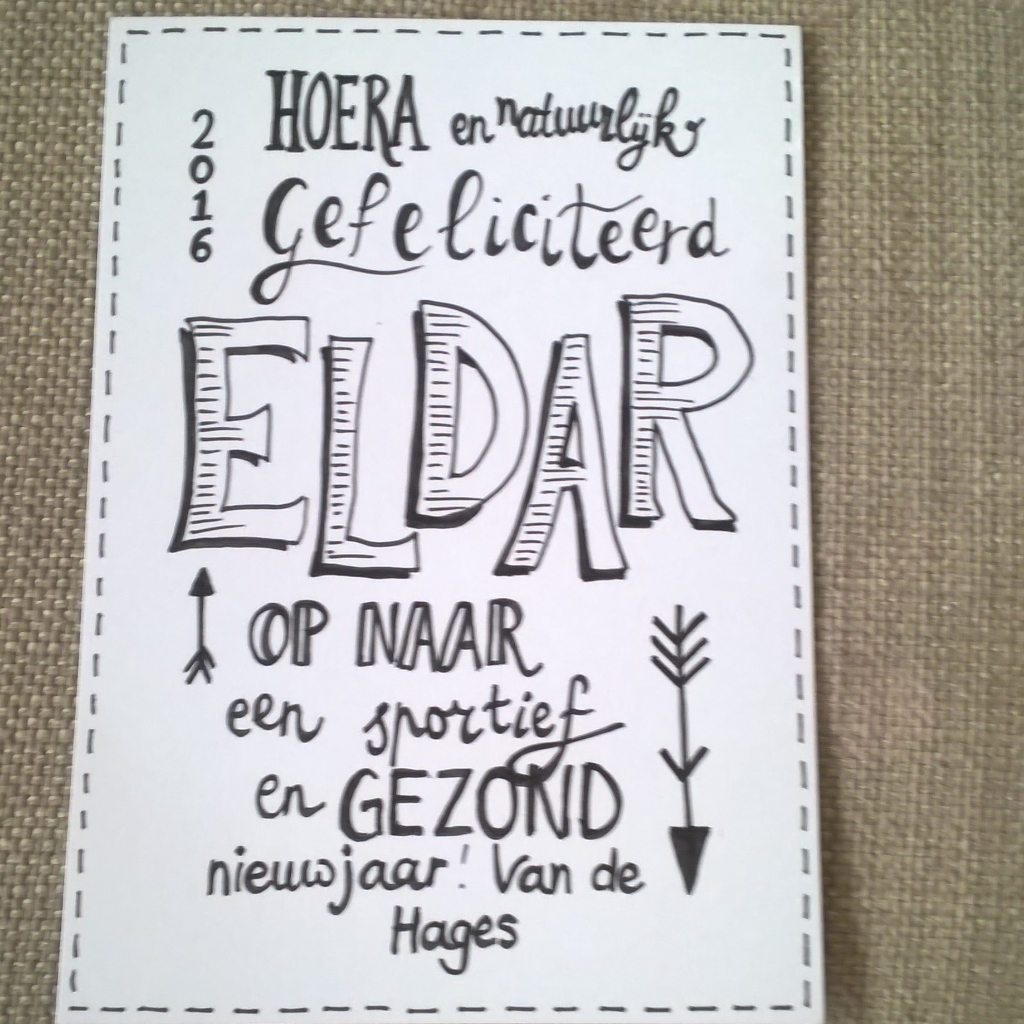 2016
HOERA en natuurlijk
Gefeliciteerd
ELDAR
OP NAAR
een sportief
en GEZOND
nieuwjaar! Van de
Hages